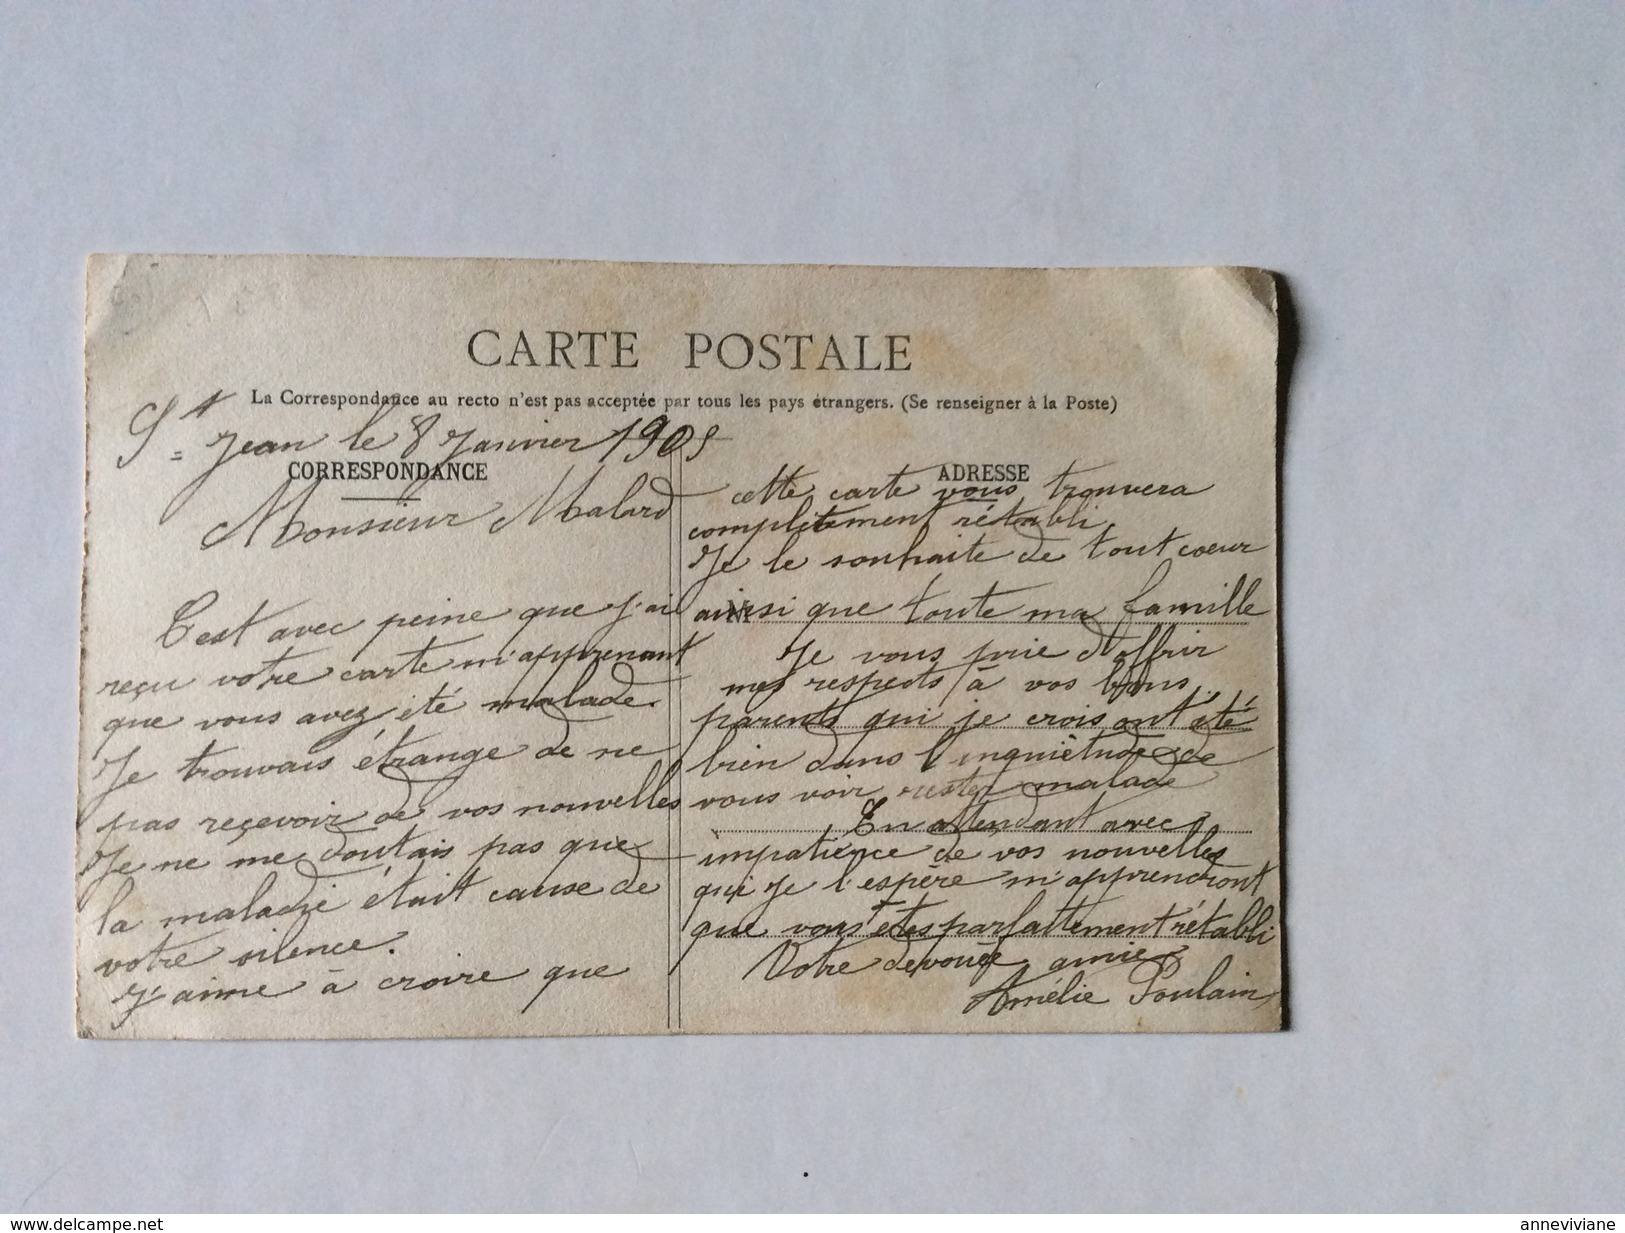 CARTE POSTALE
La Correspondance au recto n'est pas acceptée par tous les pays étrangers. (Se renseigner à la Poste)
St Jean le 8 Janvier 1905
CORRESPONDANCE
Monsieur Malard
C'est avec peine que j'ai
reçu votre carte m'apprenant
que vous avez été malade.
Je trouvais étrange de ne
pas reçevoir de vos nouvelles
Je ne me doutais pas que
la maladie était cause de
votre silence.
J'aime à croire que
ADRESSE
cette carte vous trouvera
complètement rétabli,
Je le souhaite de tout coeur
ainsi que toute ma famille
Je vous prie d'offrir
mes respects à vos bons
parents qui je crois ont été
bien dans l'inquiètude de
vous voir rester malade
En attendant avec
impatience de vos nouvelles
qui je l'espère m'apprendront
que vous êtes parfaitement rétabli
Votre dévouée amie
Amélie Poulain
www.delcampe.net
anneviviane